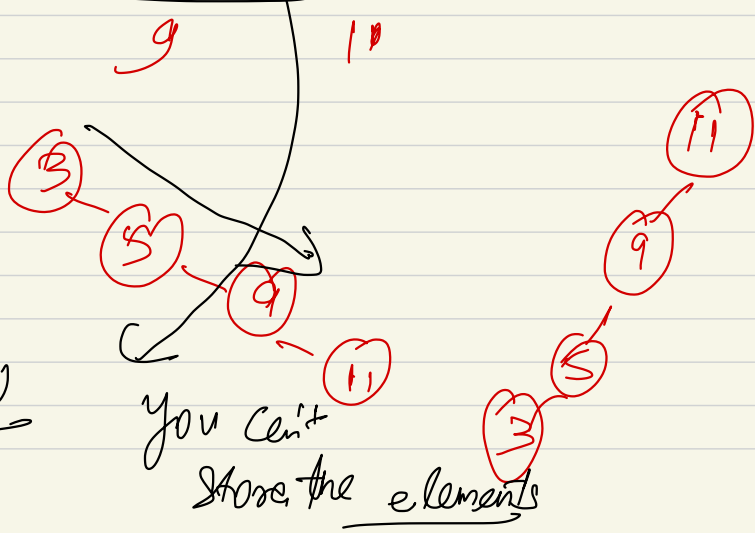 9 11
3 11
5 9
9 5
11 3
You can't
store the elements